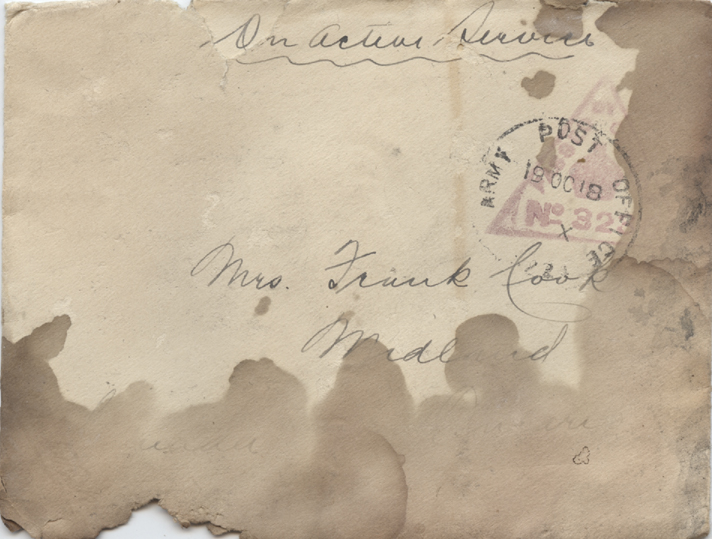 On Active Service
ARMY POST OFFICE
18 OC 18
X
No 32
Mrs. Frank Cook
Midland